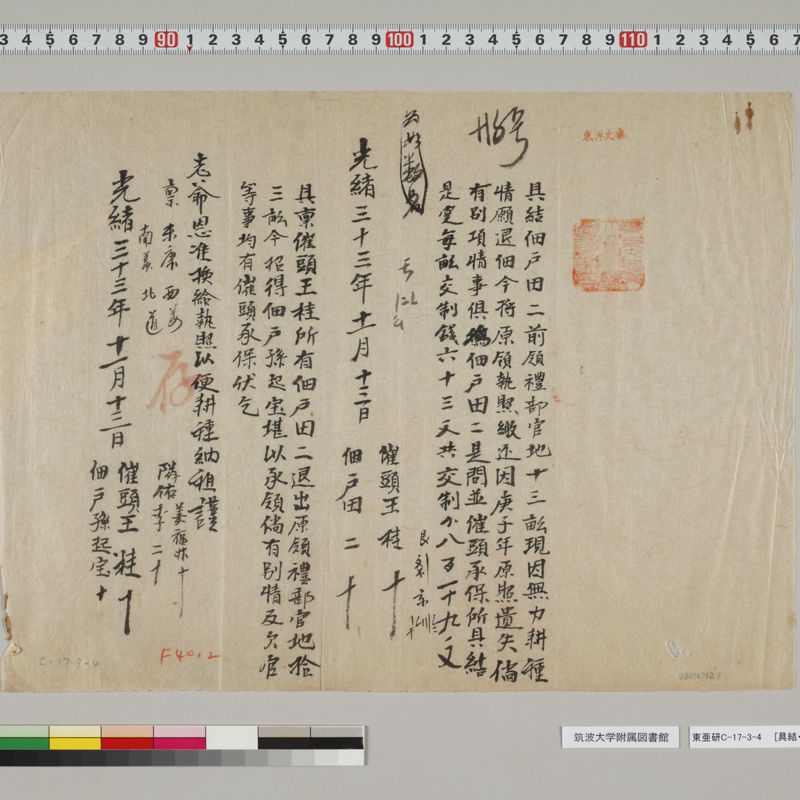 東洋文庫
具結佃戶田二前領禮部官地十三畝現因無力耕種
情願退佃今將原領執照繳还因庚子年原照遺失倘
有別項情事俱佃戶田二是問並催頭承保所具結
是實每畝交制錢六十三文共交制
光緒三十三年十一月十三日
催頭王桂十
佃戶田二十
具稟催頭王桂所有佃戶田二退出原領禮部官地拾
三畝今招得佃戶孫起宝堪以承領倘有別情及欠官
等事均有催頭承保伏乞
老爺恩准換給執照以便耕種納租謹
稟
東康西姜
南姜北道
存
隣佑
李二十
光緒三十三年十一月十三日
催頭王桂十
佃戶孫起宝十
F40.2
C-17-3-4
3 4 5 6 7 8 9 90 1 2 3 4 5 6 7 8 9 100 1 2 3 4 5 6 7 8 9 110 1 2 3 4 5 6 7
筑波大学附属図書館
東亜研C-17-3-4 [具結・